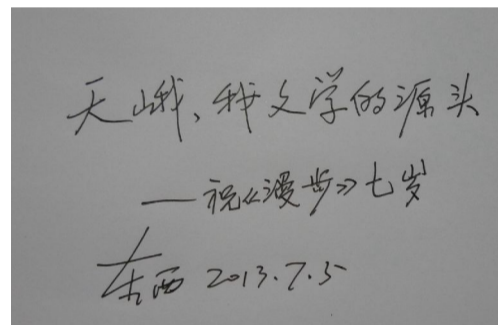 天峨，我文学的源头
——祝《漫步》七岁
东西 2013.7.5